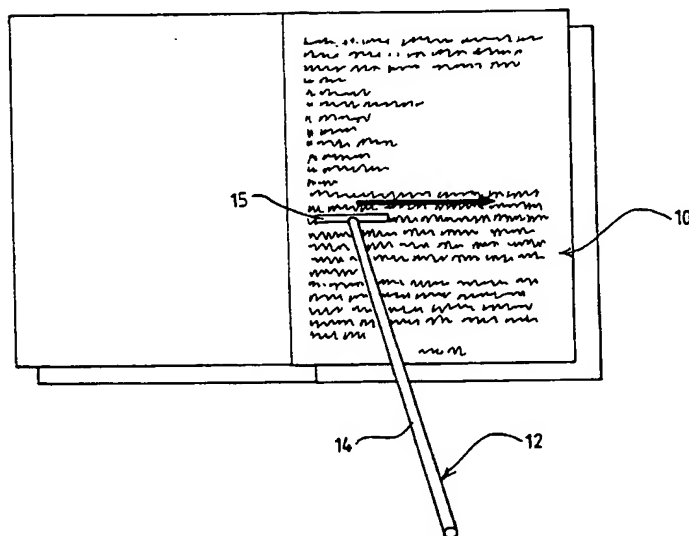 15
10
14
12